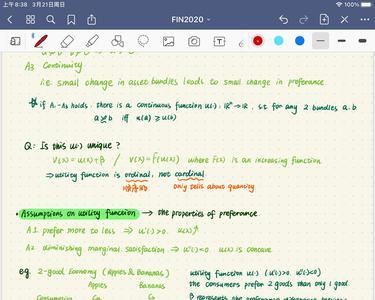 上午8:38 3月21日周日
100%
FIN2020
A3. Continuity
i.e. small change in asset bundles leads to small change in preferance.
if A1-A5 holds, there is a continuous function u(·): ℝⁿ→ℝ, st for any 2 bundles a.b
a ≿ b iff u(a) ≥ u(b)
Q: Is this u(·) unique?
V(x) = u(x)+β / V(x) = F(u(x)) where F(x) is an increasing function
⇒ utility function is ordinal, not cardinal.
Only tells about quantity
• Assumptions on utility function → the properties of preferance.
A1. prefer more to less ⇒ u'(·)>0. u(x)↑
A2. diminishing marginal satisfaction ⇒ u''(·)<0 u(x) is concave
eg. 2-good Economy (Apples & Bananas) utility function u(·) (u'(·)>0. u''(·)<0)
Apples Bananas the consumers prefer 2 goods than only 1 good.
Consumption Ca Cb β represents the preferance difference between